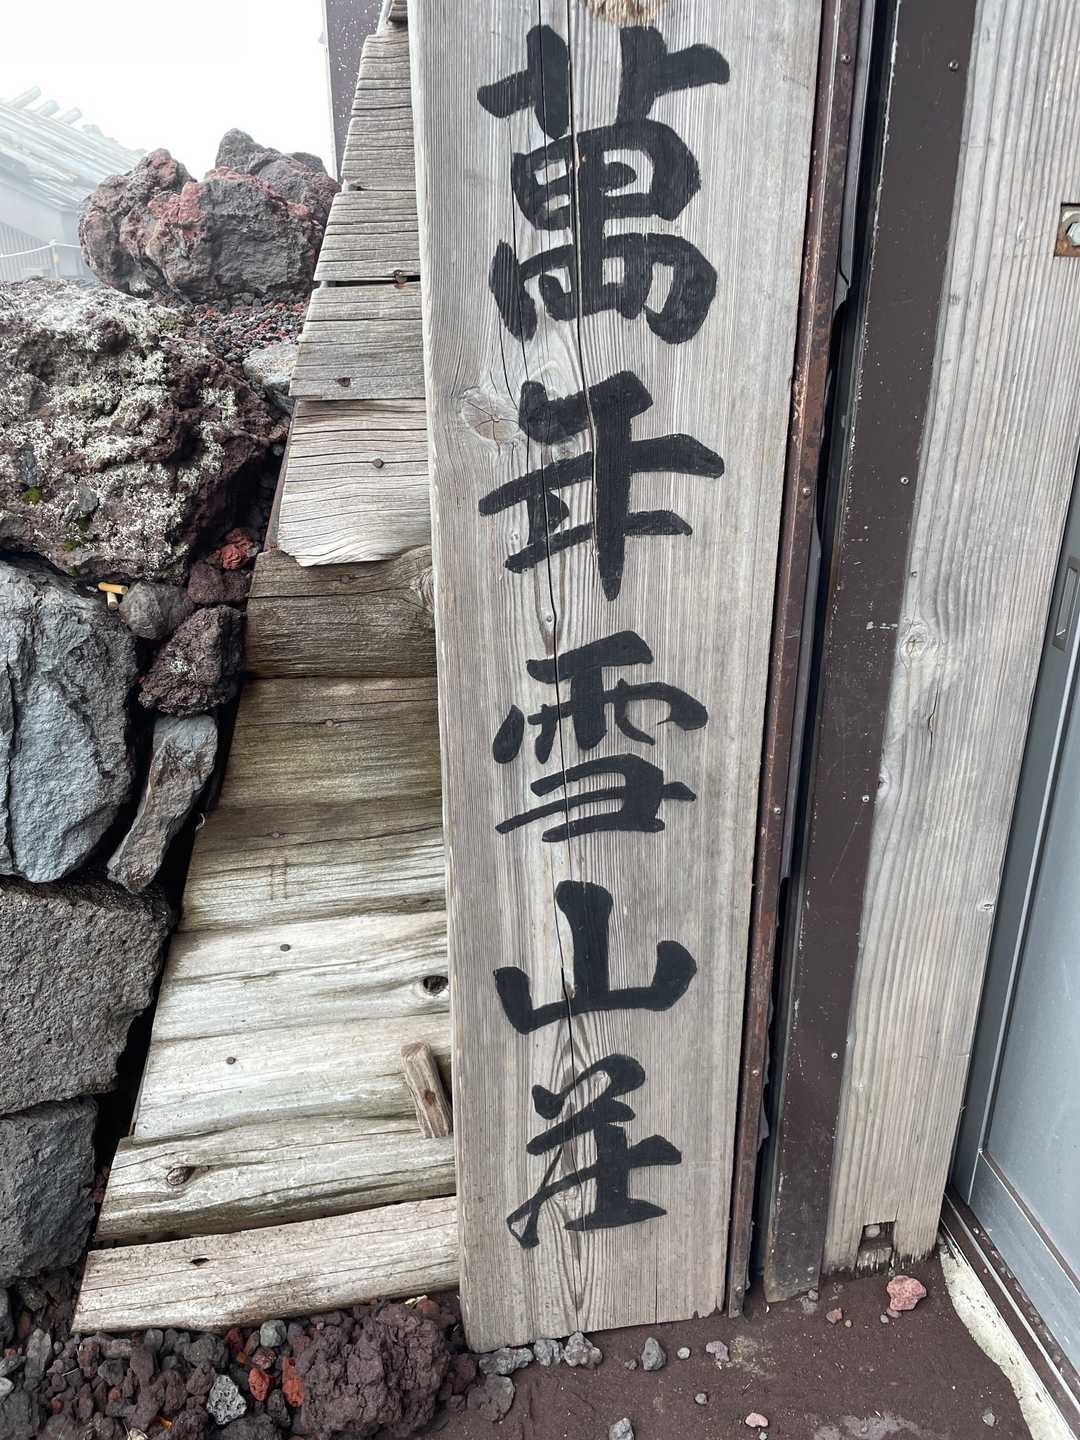 萬年雪山荘